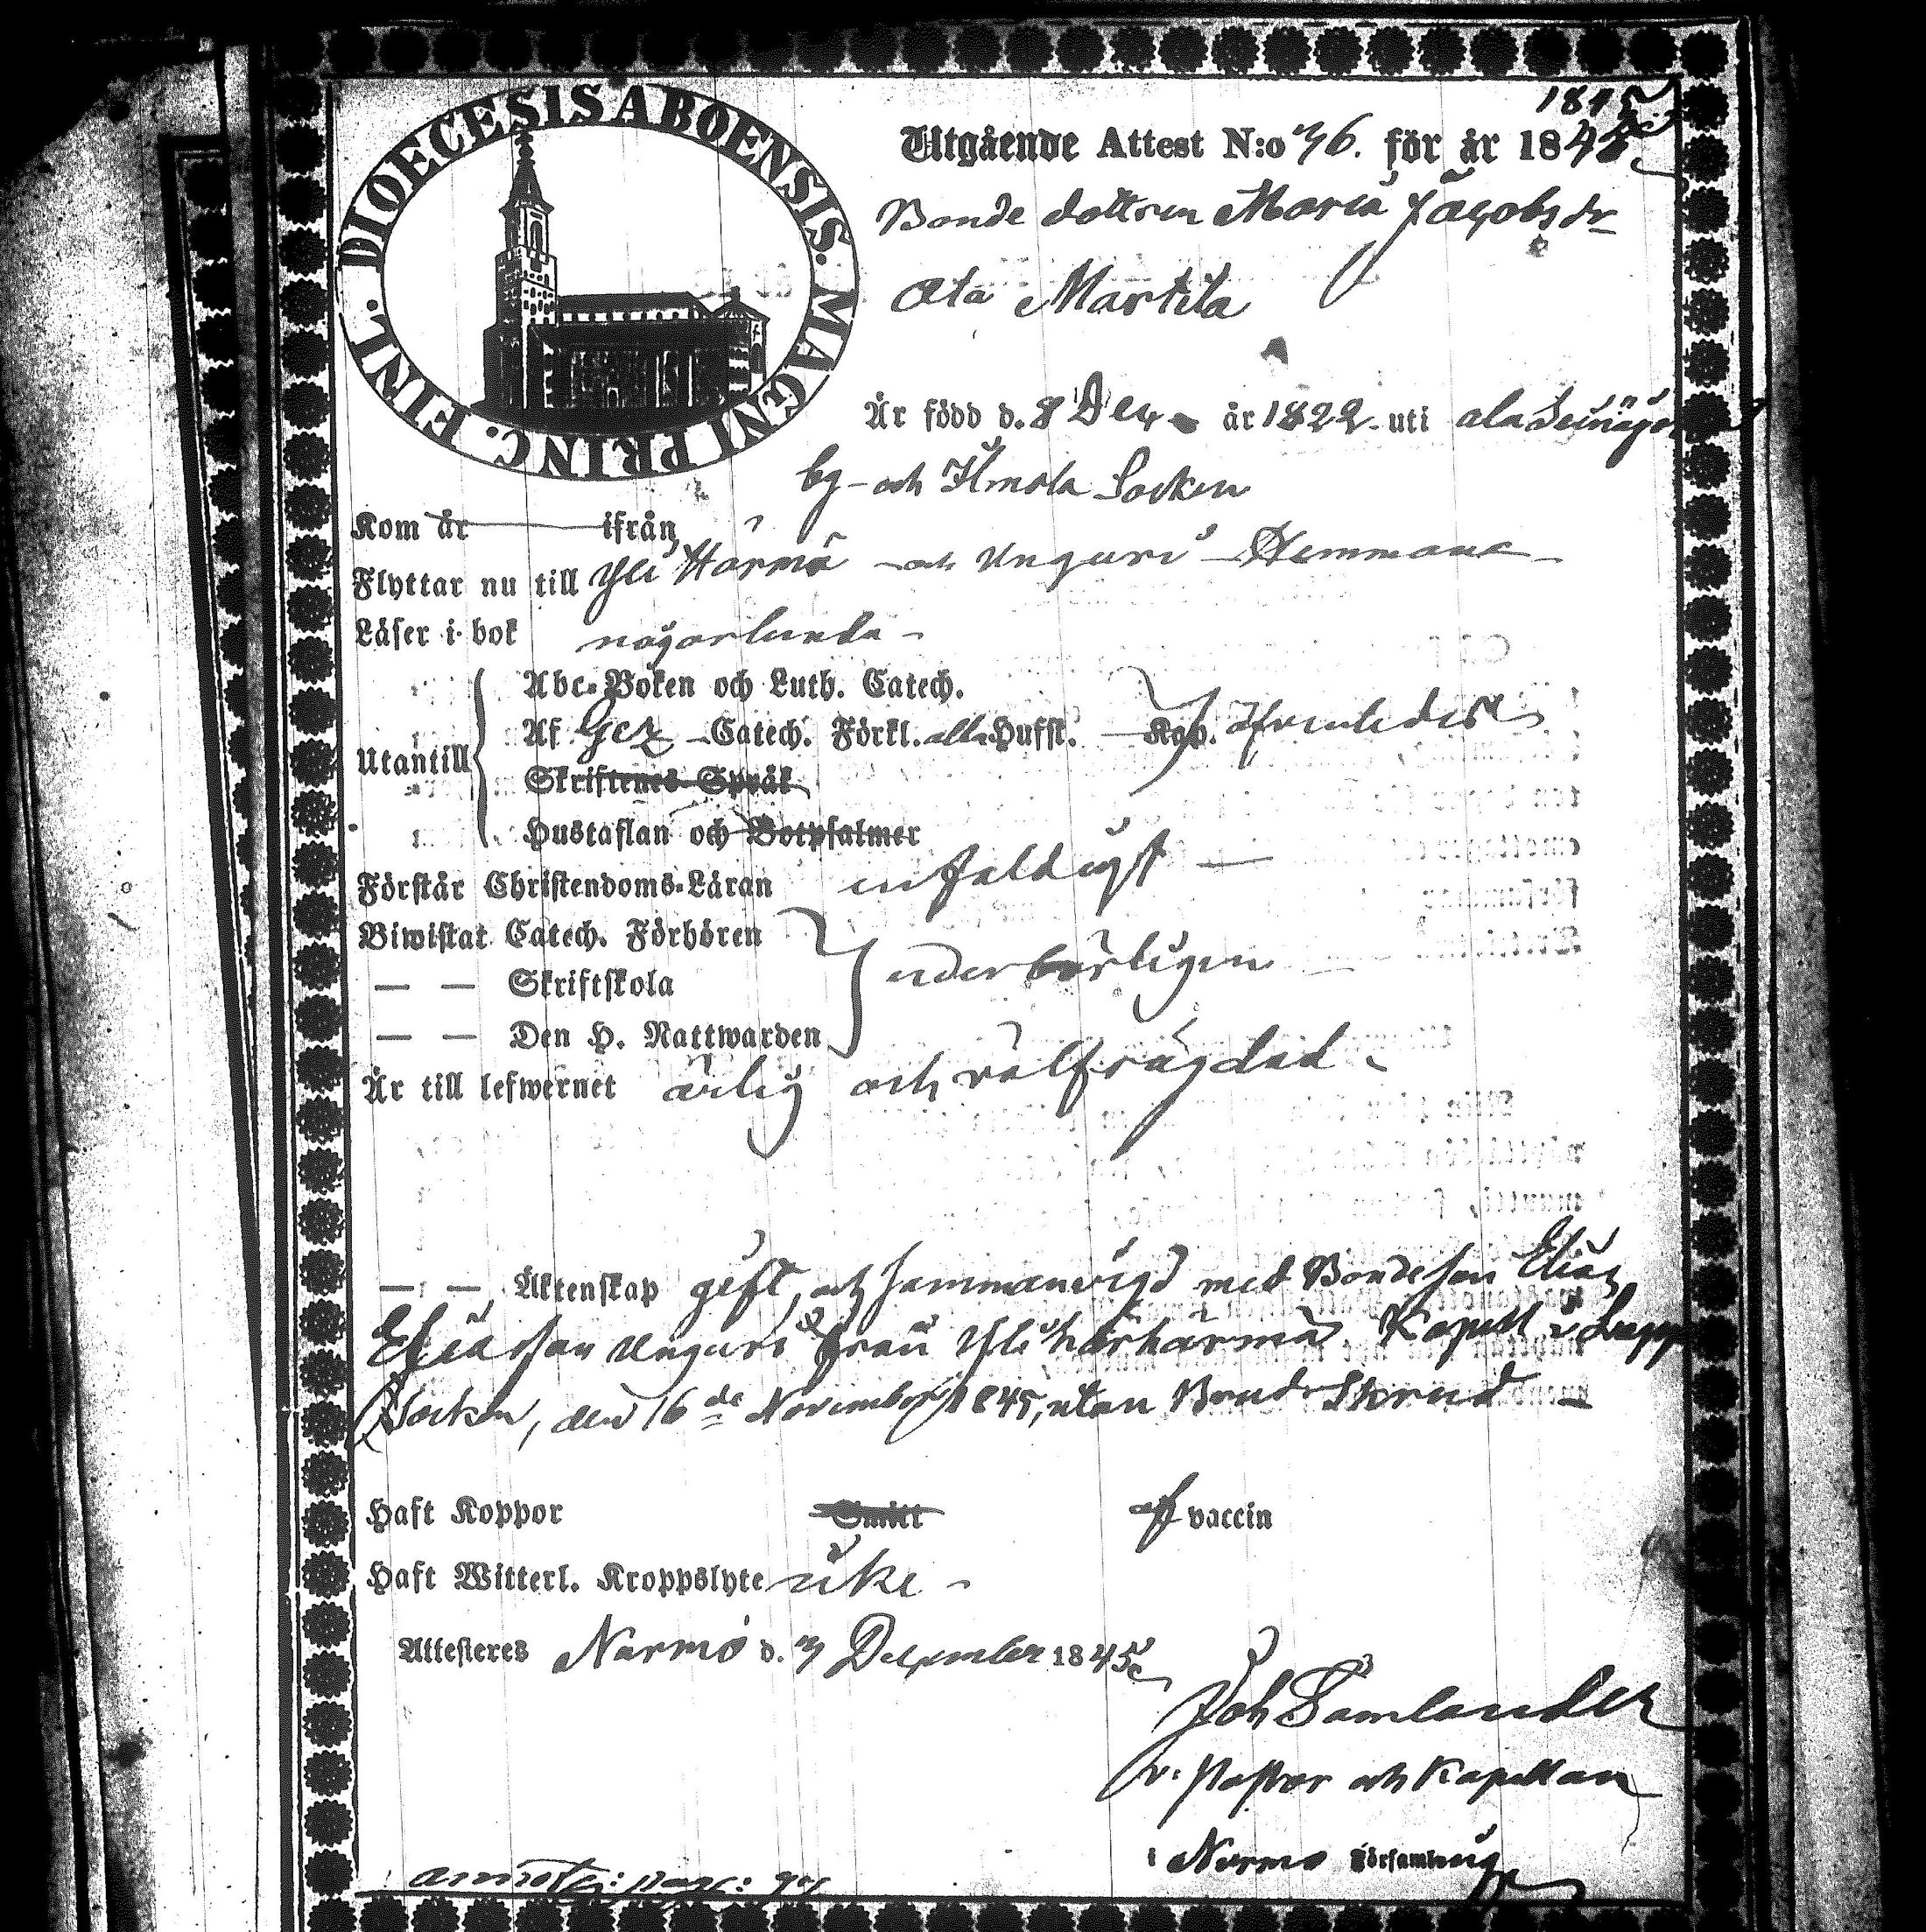 DIOECESIS ABOENSIS. MAGNI PRINC. FINL.
1845
Utgående Attest N:o 36. för år 1845
Bonde dottren Maria Jacobsdr
Ala Martila
Är född d. 8 Dec. år 1822 uti ala Seinäjo
by och Ilmola Socken
Kom år ifrån
Flyttar nu till Yli Härmä och Unguri Hemmane
Läser i bok någorlunda
Abc-Boken och Luth. Catech.
Utantill
Af Gez Catech. Förkl. alla Hufst. Kap.
Skriftenes Språk
Hustaflan och Botpsalmer
Förstår Christendoms-Läran enfaldigt
Biwistat Catech. Förhören
— — Skriftskola
— — Den H. Nattwarden
Är till lefwernet ärlig och välfrägdad
— — Äktenskap gift, och sammanvigd med Bondeson Elias
Eliasson Unguri från Yli Kapell i Lappo
Socken, den 16de November 1845, utan Brud Skrud
Haft Koppor Smitt af vaccin
Haft Witterl. Kroppslyte icke
Attesteres Nurmo d. 3 December 1845
Joh Samlander
v. Pastor och Kapellan
i Nurmo Församling
annot: pag: